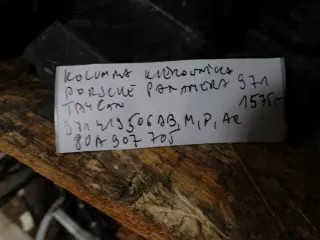 KOLUMNA KIEROWNICZA
PORSCHE PANAMERA 971
TAYCAN 1575
971 419 506 AB, M, P, AR
80A 907 705